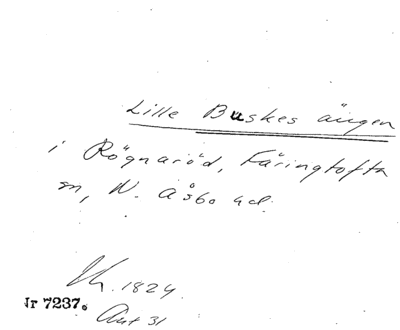 Lille Buskes ängen
i Rögnaröd, Färingtofta
sn, N. Åsbo hd.
1824.
Nr 7237.
Ant 31